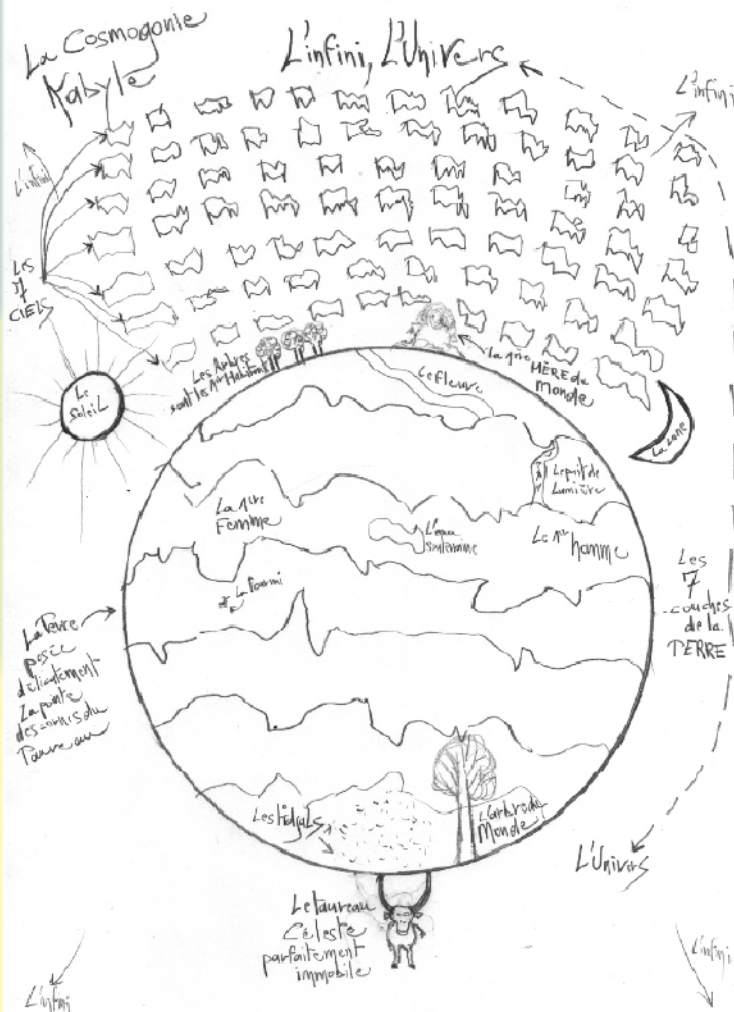 La Cosmogonie
Kabyle
L'infini, L'Univers
L'infini
L'infini
Les
7
CIELS
Le
Soleil
Les Arbres
sont les 1er Habitants
La 1ère MÈRE du
Monde
Le fleuve
La Lune
Le puit de
Lumière
La 1ère
Femme
L'eau
Souterraine
Le 1er homme
La Fourmi
Les
7
couches
de la
TERRE
La Terre
posée
délicatement
La pointe
des cornes du
Taureau
Les
L'arbre du
Monde
L'Univers
Le taureau
Céleste
parfaitement
immobile
L'infini
L'infini